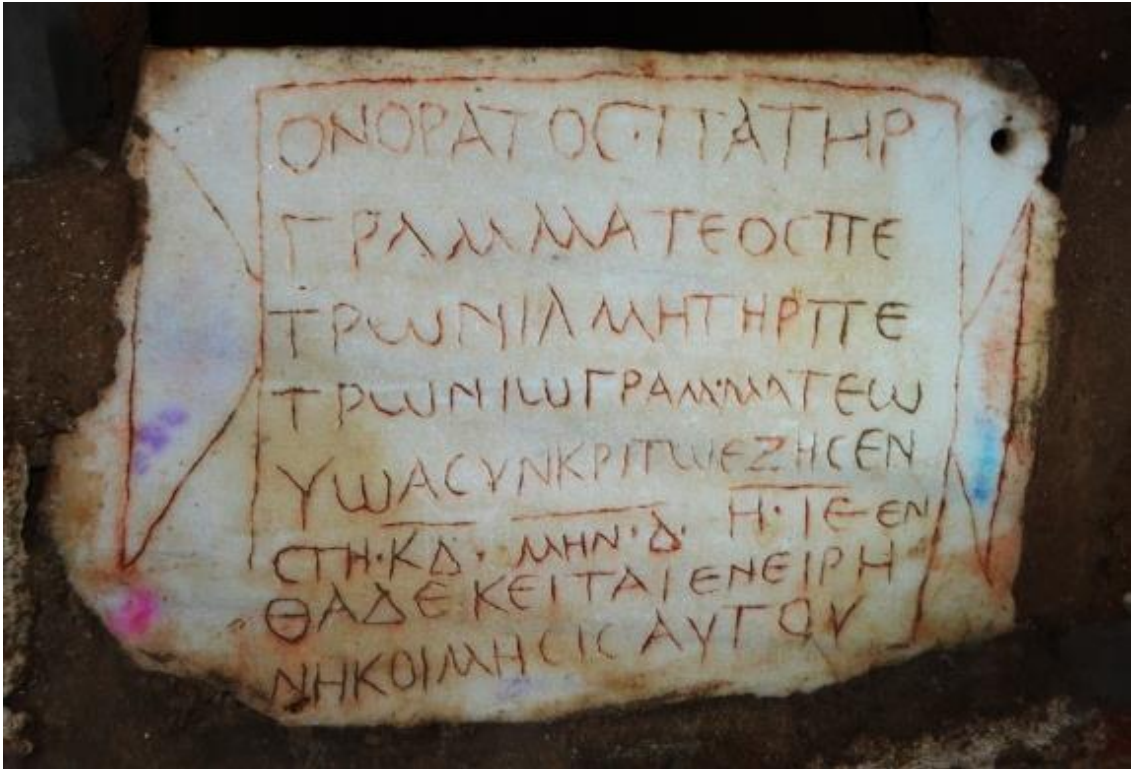 ΟΝΟΡΑΤΟC·ΠΑΤΗΡ
ΓΡΑΜΜΑΤΕΟCΠΕ
ΤΡΩΝΙΑΜΗΤΗΡΠΕ
ΤΡΩΝΙΩΓΡΑΜ·ΜΑΤΕΩ
ΥΩΑCΥΝΚΡΙΤΩΕΖΗCΕΝ
CΤΗ·ΚΔ·ΜΗΝ·Δ·Η·ΙΕ·ΕΝ
ΘΑΔΕΚΕΙΤΑΙΕΝΕΙΡΗ
ΝΗΚΟΙΜΗCΙCΑΥΓΟΥ